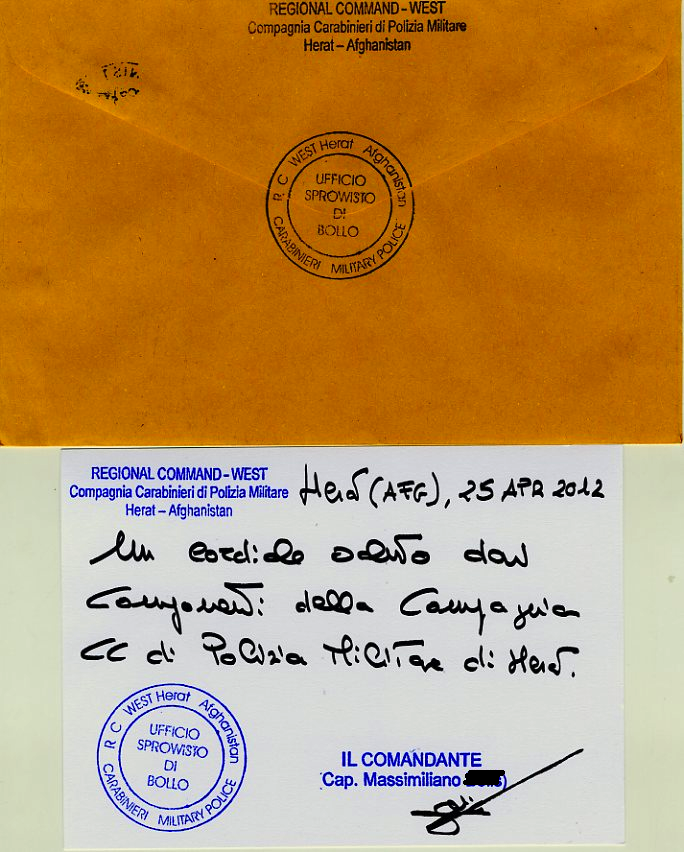 REGIONAL COMMAND - WEST
Compagnia Carabinieri di Polizia Militare
Herat – Afghanistan
R C WEST Herat Afghanistan
UFFICIO
SPROWISTO
DI
BOLLO
CARABINIERI MILITARY POLICE
REGIONAL COMMAND - WEST
Compagnia Carabinieri di Polizia Militare
Herat – Afghanistan
Herat (AFG), 25 APR 2012
Un cordiale saluto dai
Componenti della Compagnia
CC di Polizia Militare di Herat.
R C WEST Herat Afghanistan
UFFICIO
SPROWISTO
DI
BOLLO
CARABINIERI MILITARY POLICE
IL COMANDANTE
Cap. Massimiliano